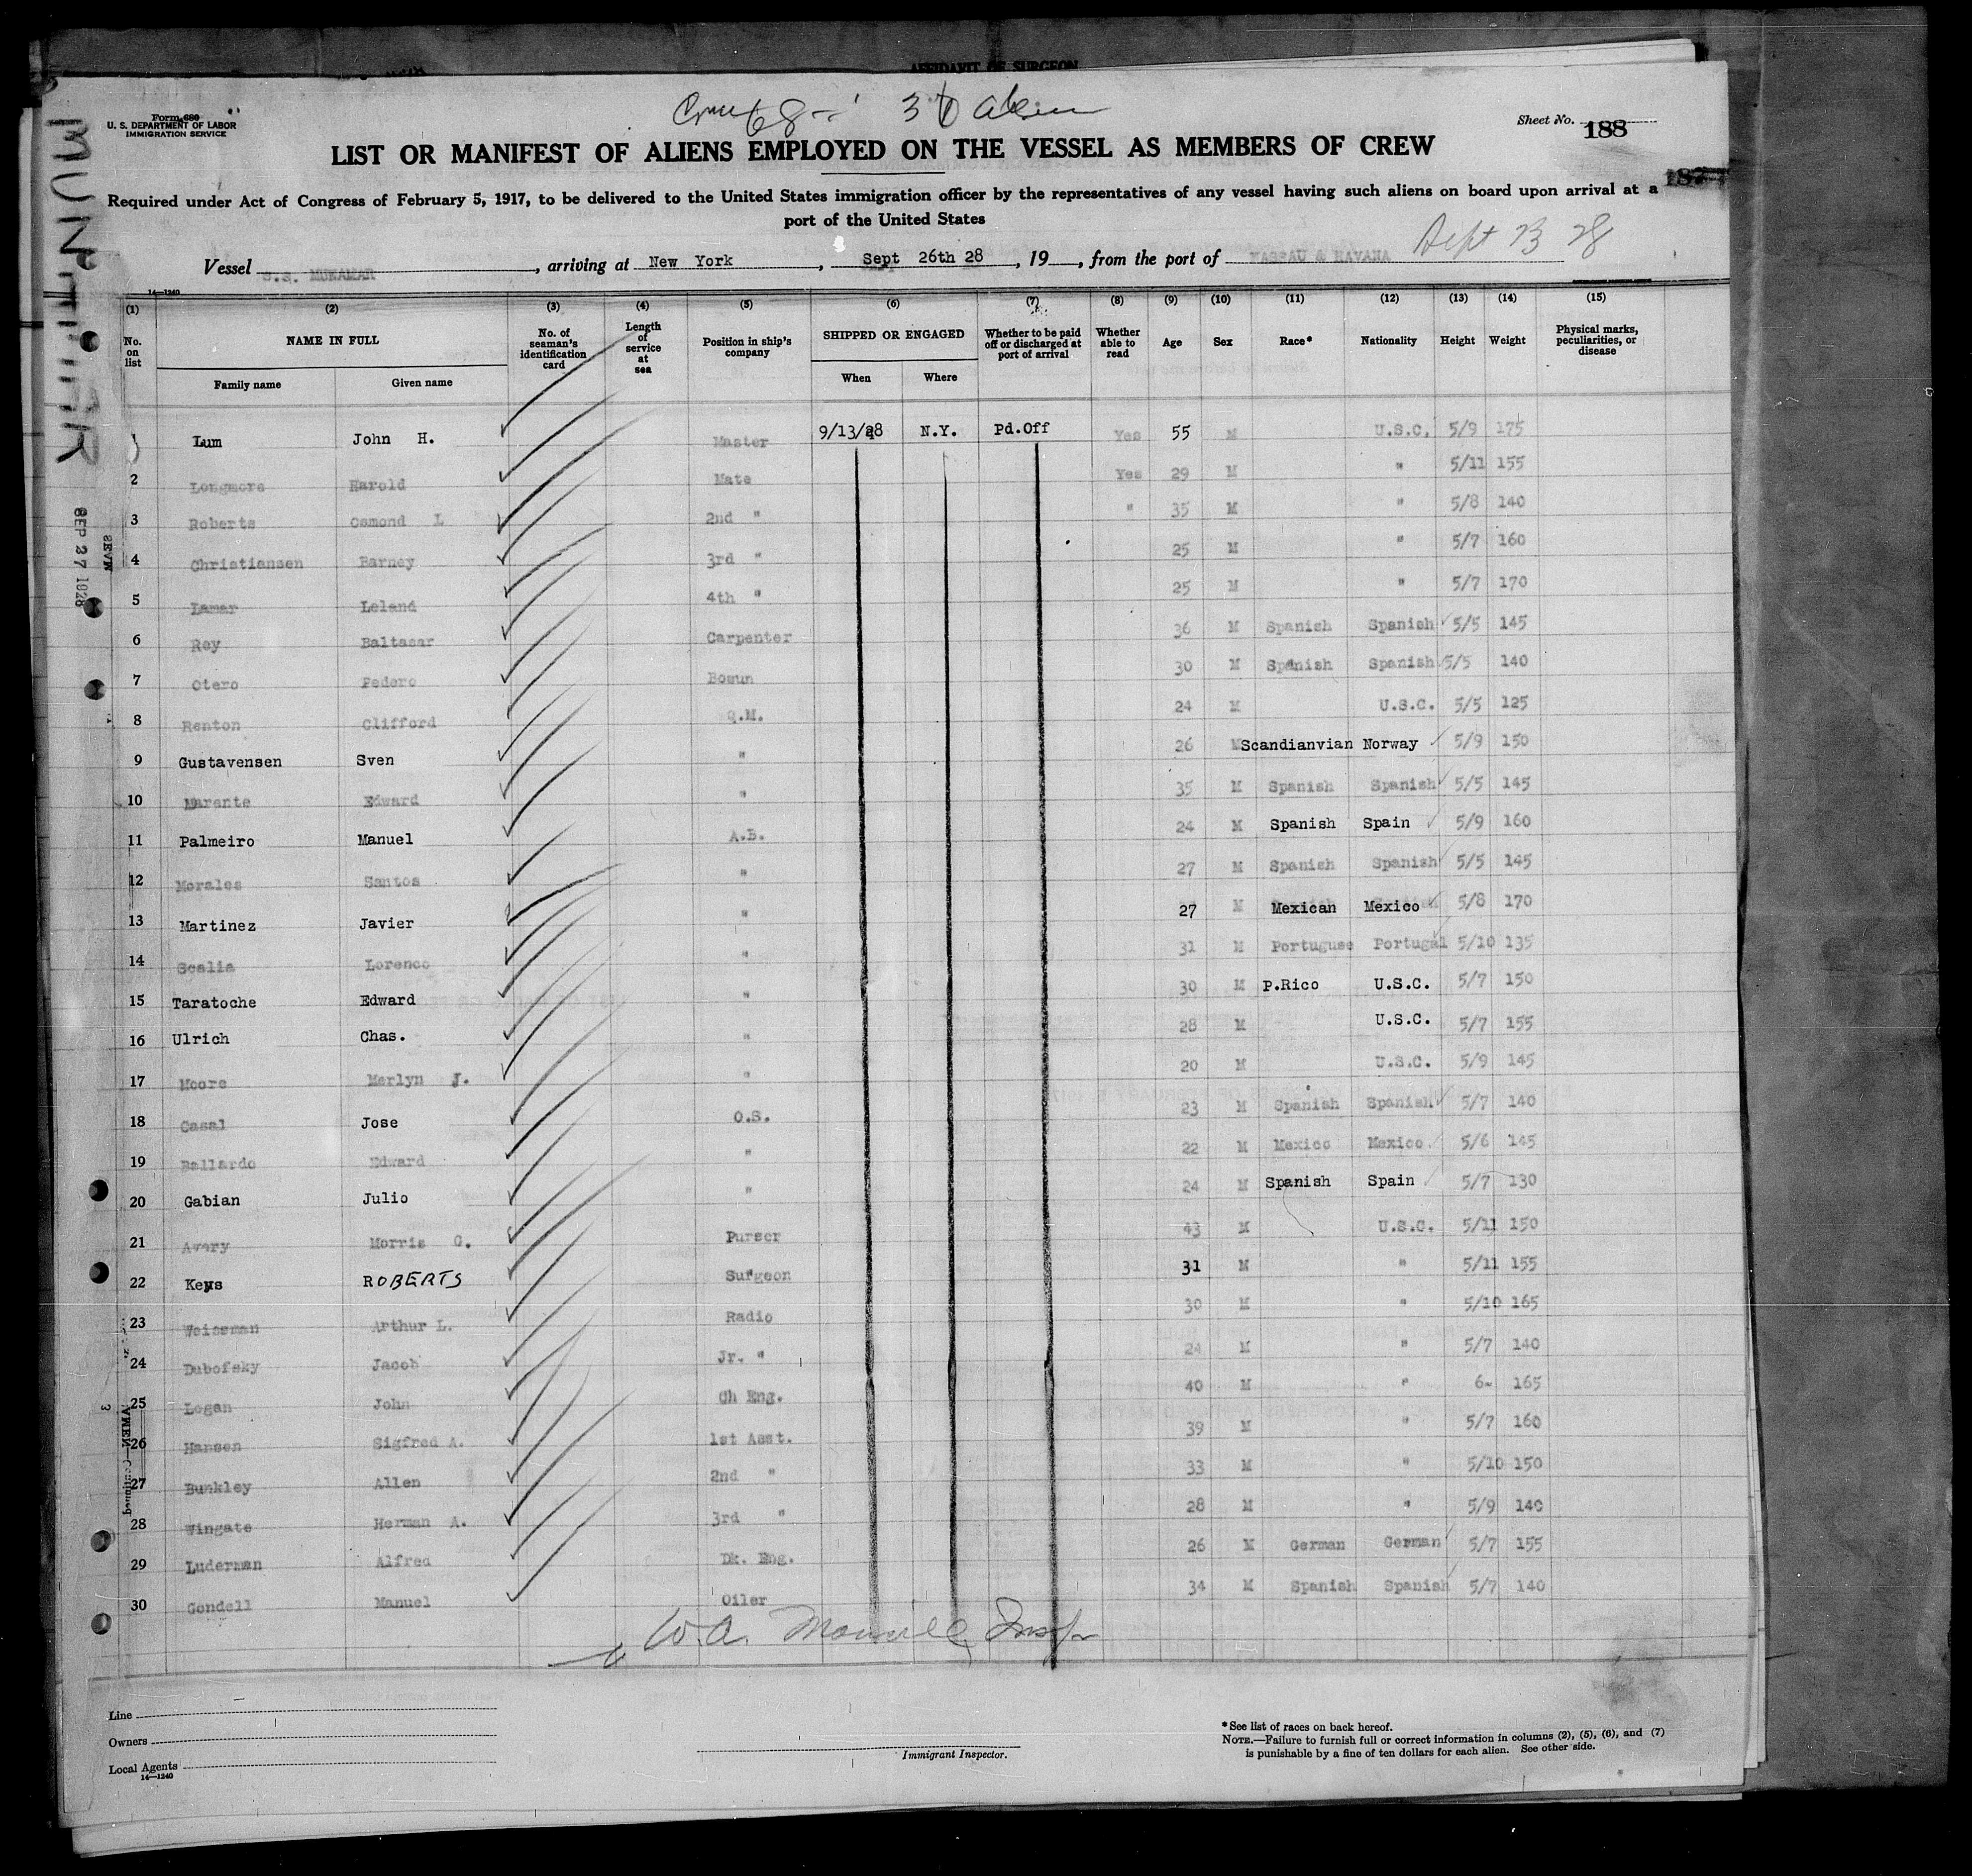 AFFIDAVIT OF SURGEON
Form 680
U. S. DEPARTMENT OF LABOR
IMMIGRATION SERVICE
Crew 68 - 30
Sheet No. 188
LIST OR MANIFEST OF ALIENS EMPLOYED ON THE VESSEL AS MEMBERS OF CREW
187
Required under Act of Congress of February 5, 1917, to be delivered to the United States immigration officer by the representatives of any vessel having such aliens on board upon arrival at a
port of the United States
Vessel S.S. MUNAMAR, arriving at New York, Sept 26th 28, 19, from the port of NASSAU & HAVANA Sept 23 28
14—1240
(1) (2) (3) (4) (5) (6) (7) (8) (9) (10) (11) (12) (13) (14) (15)
No. on list NAME IN FULL No. of seaman's identification card Length of service at sea Position in ship's company SHIPPED OR ENGAGED Whether to be paid off or discharged at port of arrival Whether able to read Age Sex Race* Nationality Height Weight Physical marks, peculiarities, or disease
Family name Given name When Where
1 Lum John H. Master 9/13/28 N.Y. Pd.Off Yes 55 M U.S.C. 5/9 175
2 Longmore Harold Mate Yes 29 M " 5/11 155
3 Roberts Osmond L 2nd " " 35 M " 5/8 140
4 Christiansen Barney 3rd " 25 M " 5/7 160
5 Lamar Leland 4th " 25 M " 5/7 170
6 Rey Baltasar Carpenter 36 M Spanish Spanish 5/5 145
7 Otero Pedero Bosun 30 M Spanish Spanish 5/5 140
8 Renton Clifford Q.M. 24 M U.S.C. 5/5 125
9 Gustavensen Sven " 26 M Scandianvian Norway 5/9 150
10 Marante Edward " 35 M Spanish Spanish 5/5 145
11 Palmeiro Manuel A.B. 24 M Spanish Spain 5/9 160
12 Morales Santos " 27 M Spanish Spanish 5/5 145
13 Martinez Javier " 27 M Mexican Mexico 5/8 170
14 Scalia Lorenco " 31 M Portuguse Portugal 5/10 135
15 Taratoche Edward " 30 M P.Rico U.S.C. 5/7 150
16 Ulrich Chas. " 28 M U.S.C. 5/7 155
17 Moore Merlyn J. " 20 M U.S.C. 5/9 145
18 Casal Jose O.S. 23 M Spanish Spanish 5/7 140
19 Ballardo Edward " 22 M Mexico Mexico 5/6 145
20 Gabian Julio " 24 M Spanish Spain 5/7 130
21 Avery Morris G. Purser 43 M U.S.C. 5/11 150
22 Keys ROBERTS Surgeon 31 M " 5/11 155
23 Weissman Arthur L. Radio 30 M " 5/10 165
24 Dubofsky Jacob Jr. " 24 M " 5/7 140
25 Logan John Ch Eng. 40 M " 6- 165
26 Hansen Sigfred A. 1st Asst. 39 M " 5/7 160
27 Bunkley Allen 2nd " 33 M " 5/10 150
28 Wingate Herman A. 3rd " 28 M " 5/9 140
29 Luderman Alfred Dk. Eng. 26 M German German 5/7 155
30 Gondell Manuel Oiler 34 M Spanish Spanish 5/7 140
W.A. Insp
Line
Owners
Local Agents
14—1240
Immigrant Inspector.
*See list of races on back hereof.
NOTE.—Failure to furnish full or correct information in columns (2), (5), (6), and (7)
is punishable by a fine of ten dollars for each alien. See other side.
SEP 27 1928